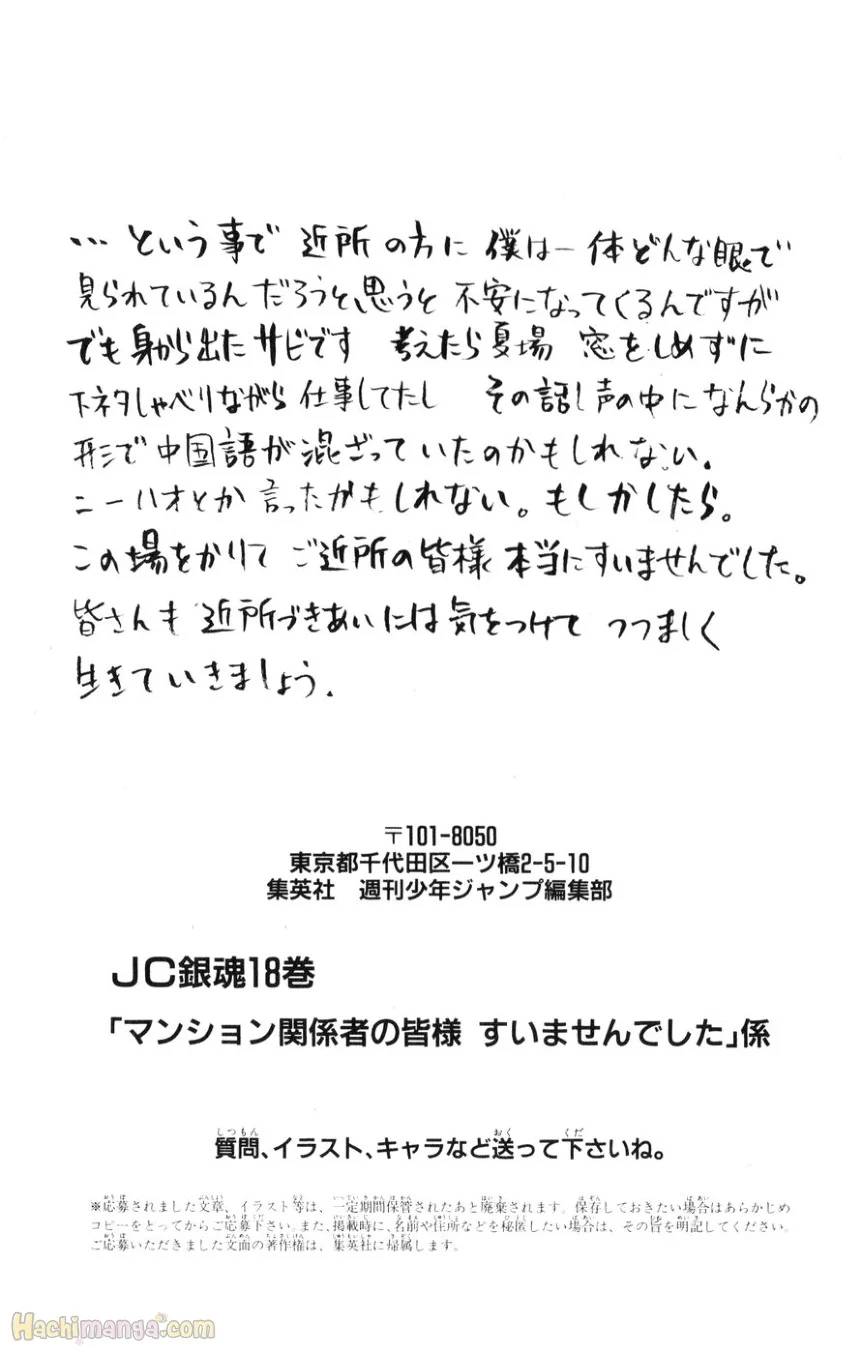 …という事で 近所の方に 僕は一体どんな眼で
見られているんだろうと、思うと 不安になってくるんですが
でも身から出たサビです 考えたら夏場 窓をしめずに
下ネタしゃべりながら 仕事してたし その話し声の中になんらかの
形で中国語が混ざっていたのかもしれない。
ニーハオとか言ったかもしれない。もしかしたら。
この場をかりて ご近所の皆様 本当にすいませんでした。
皆さんも 近所づきあいには気をつけて つつましく
生きていきましょう。
〒101-8050
東京都千代田区一ツ橋2-5-10
集英社 週刊少年ジャンプ編集部
JC銀魂18巻
「マンション関係者の皆様 すいませんでした」係
質問、イラスト、キャラなど送って下さいね。
※応募されました文章、イラスト等は、一定期間保管されたあと廃棄されます。保存しておきたい場合はあらかじめ
コピーをとってからご応募下さい。また、掲載時に、名前や住所などを秘匿したい場合は、その旨を明記してください。
ご応募いただきました文面の著作権は、集英社に帰属します。
Hachimanga.com